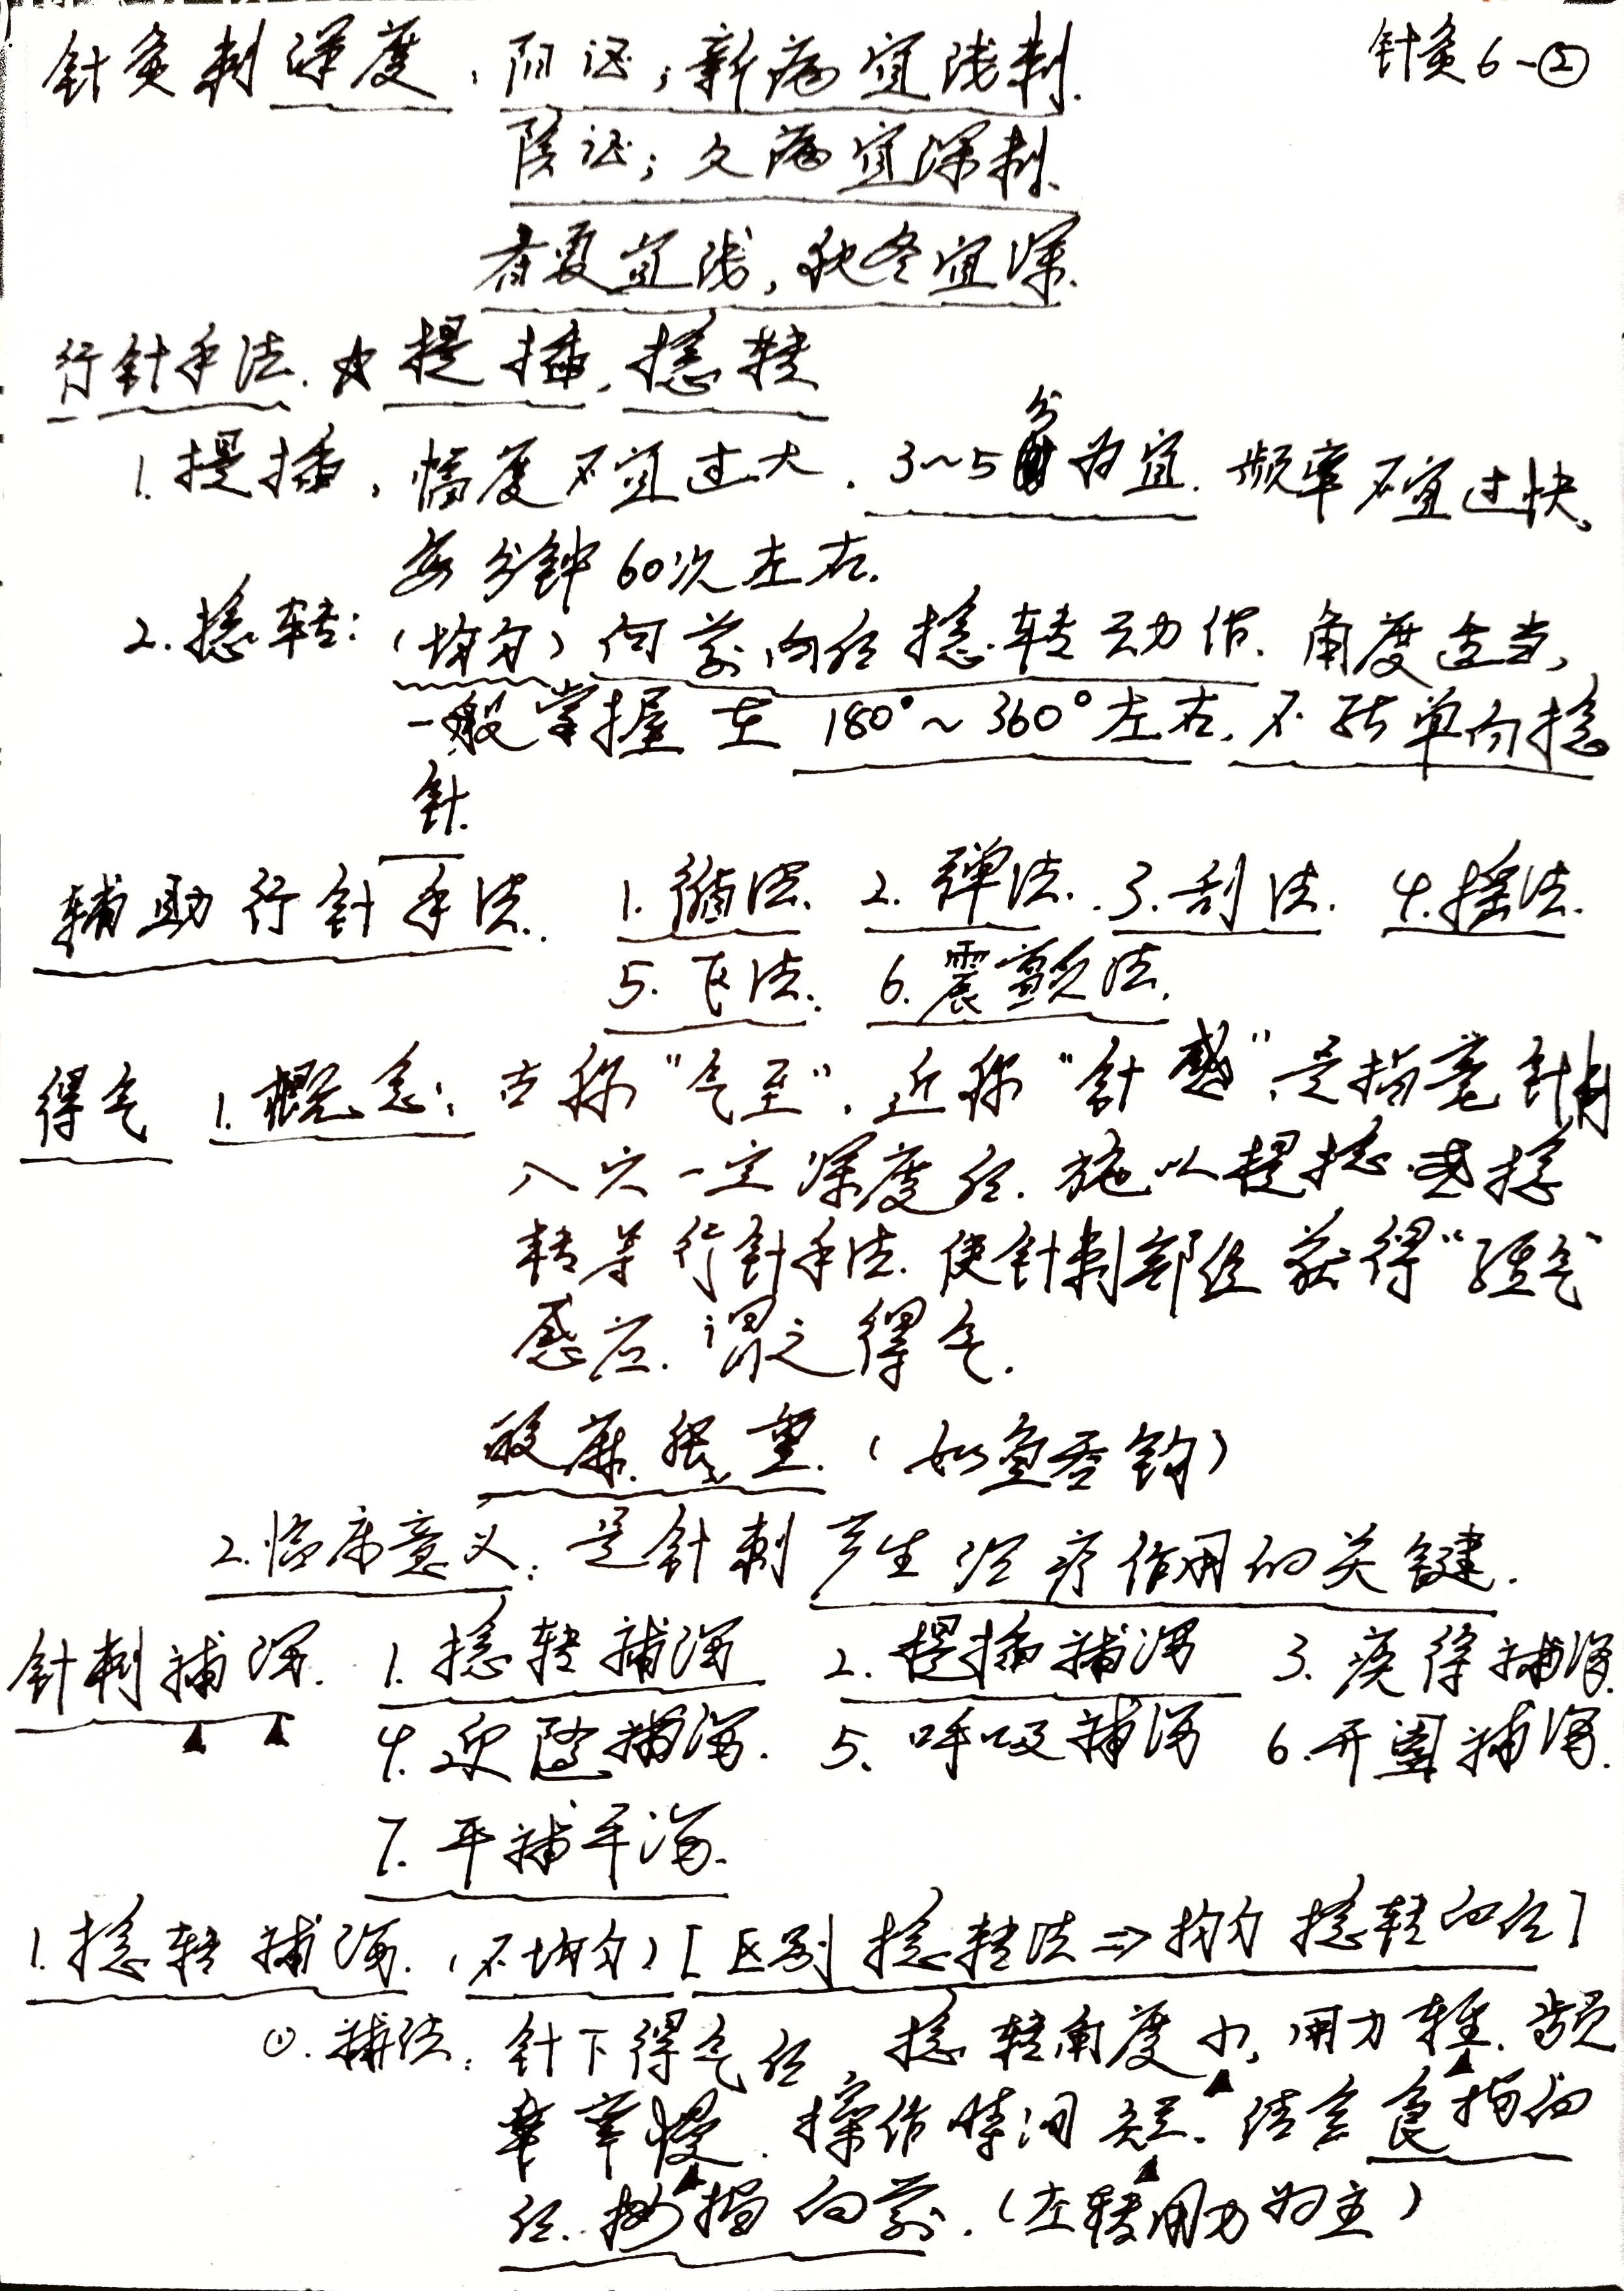 针灸6-②
针灸刺深度：阳证；新病宜浅刺.
阴证；久病宜深刺.
春夏宜浅，秋冬宜深.
行针手法. 提插，捻转
1. 提插，幅度不宜过大. 3~5分为宜. 频率不宜过快，
每分钟60次左右.
2. 捻转：（均匀）向前向后捻转动作. 角度适当，
一般掌握在 180°~360°左右，不能单向捻
针.
辅助行针手法. 1. 循法. 2. 弹法. 3. 刮法. 4. 摇法.
5. 飞法. 6. 震颤法.
得气 1. 概念：古称“气至”，近称“针感”，是指毫针刺
入穴一定深度后. 施以提捻 捻
转等行针手法. 使针刺部位获得“经气”
感应. 谓之得气.
酸麻胀重.（如鱼吞钩）
2. 临床意义：是针刺产生治疗作用的关键.
针刺补泻. 1. 捻转补泻 2. 提插补泻 3. 疾徐补泻.
4. 迎随补泻. 5. 呼吸补泻 6. 开阖补泻.
7. 平补平泻.
1. 捻转补泻.（不均匀）[区别捻转法⇒均匀捻转向后]
①. 补法：针下得气后，捻转角度小，用力轻. 频
率慢. 操作时间短. 结合食指向
后. 拇指向前.（左转用力为主）